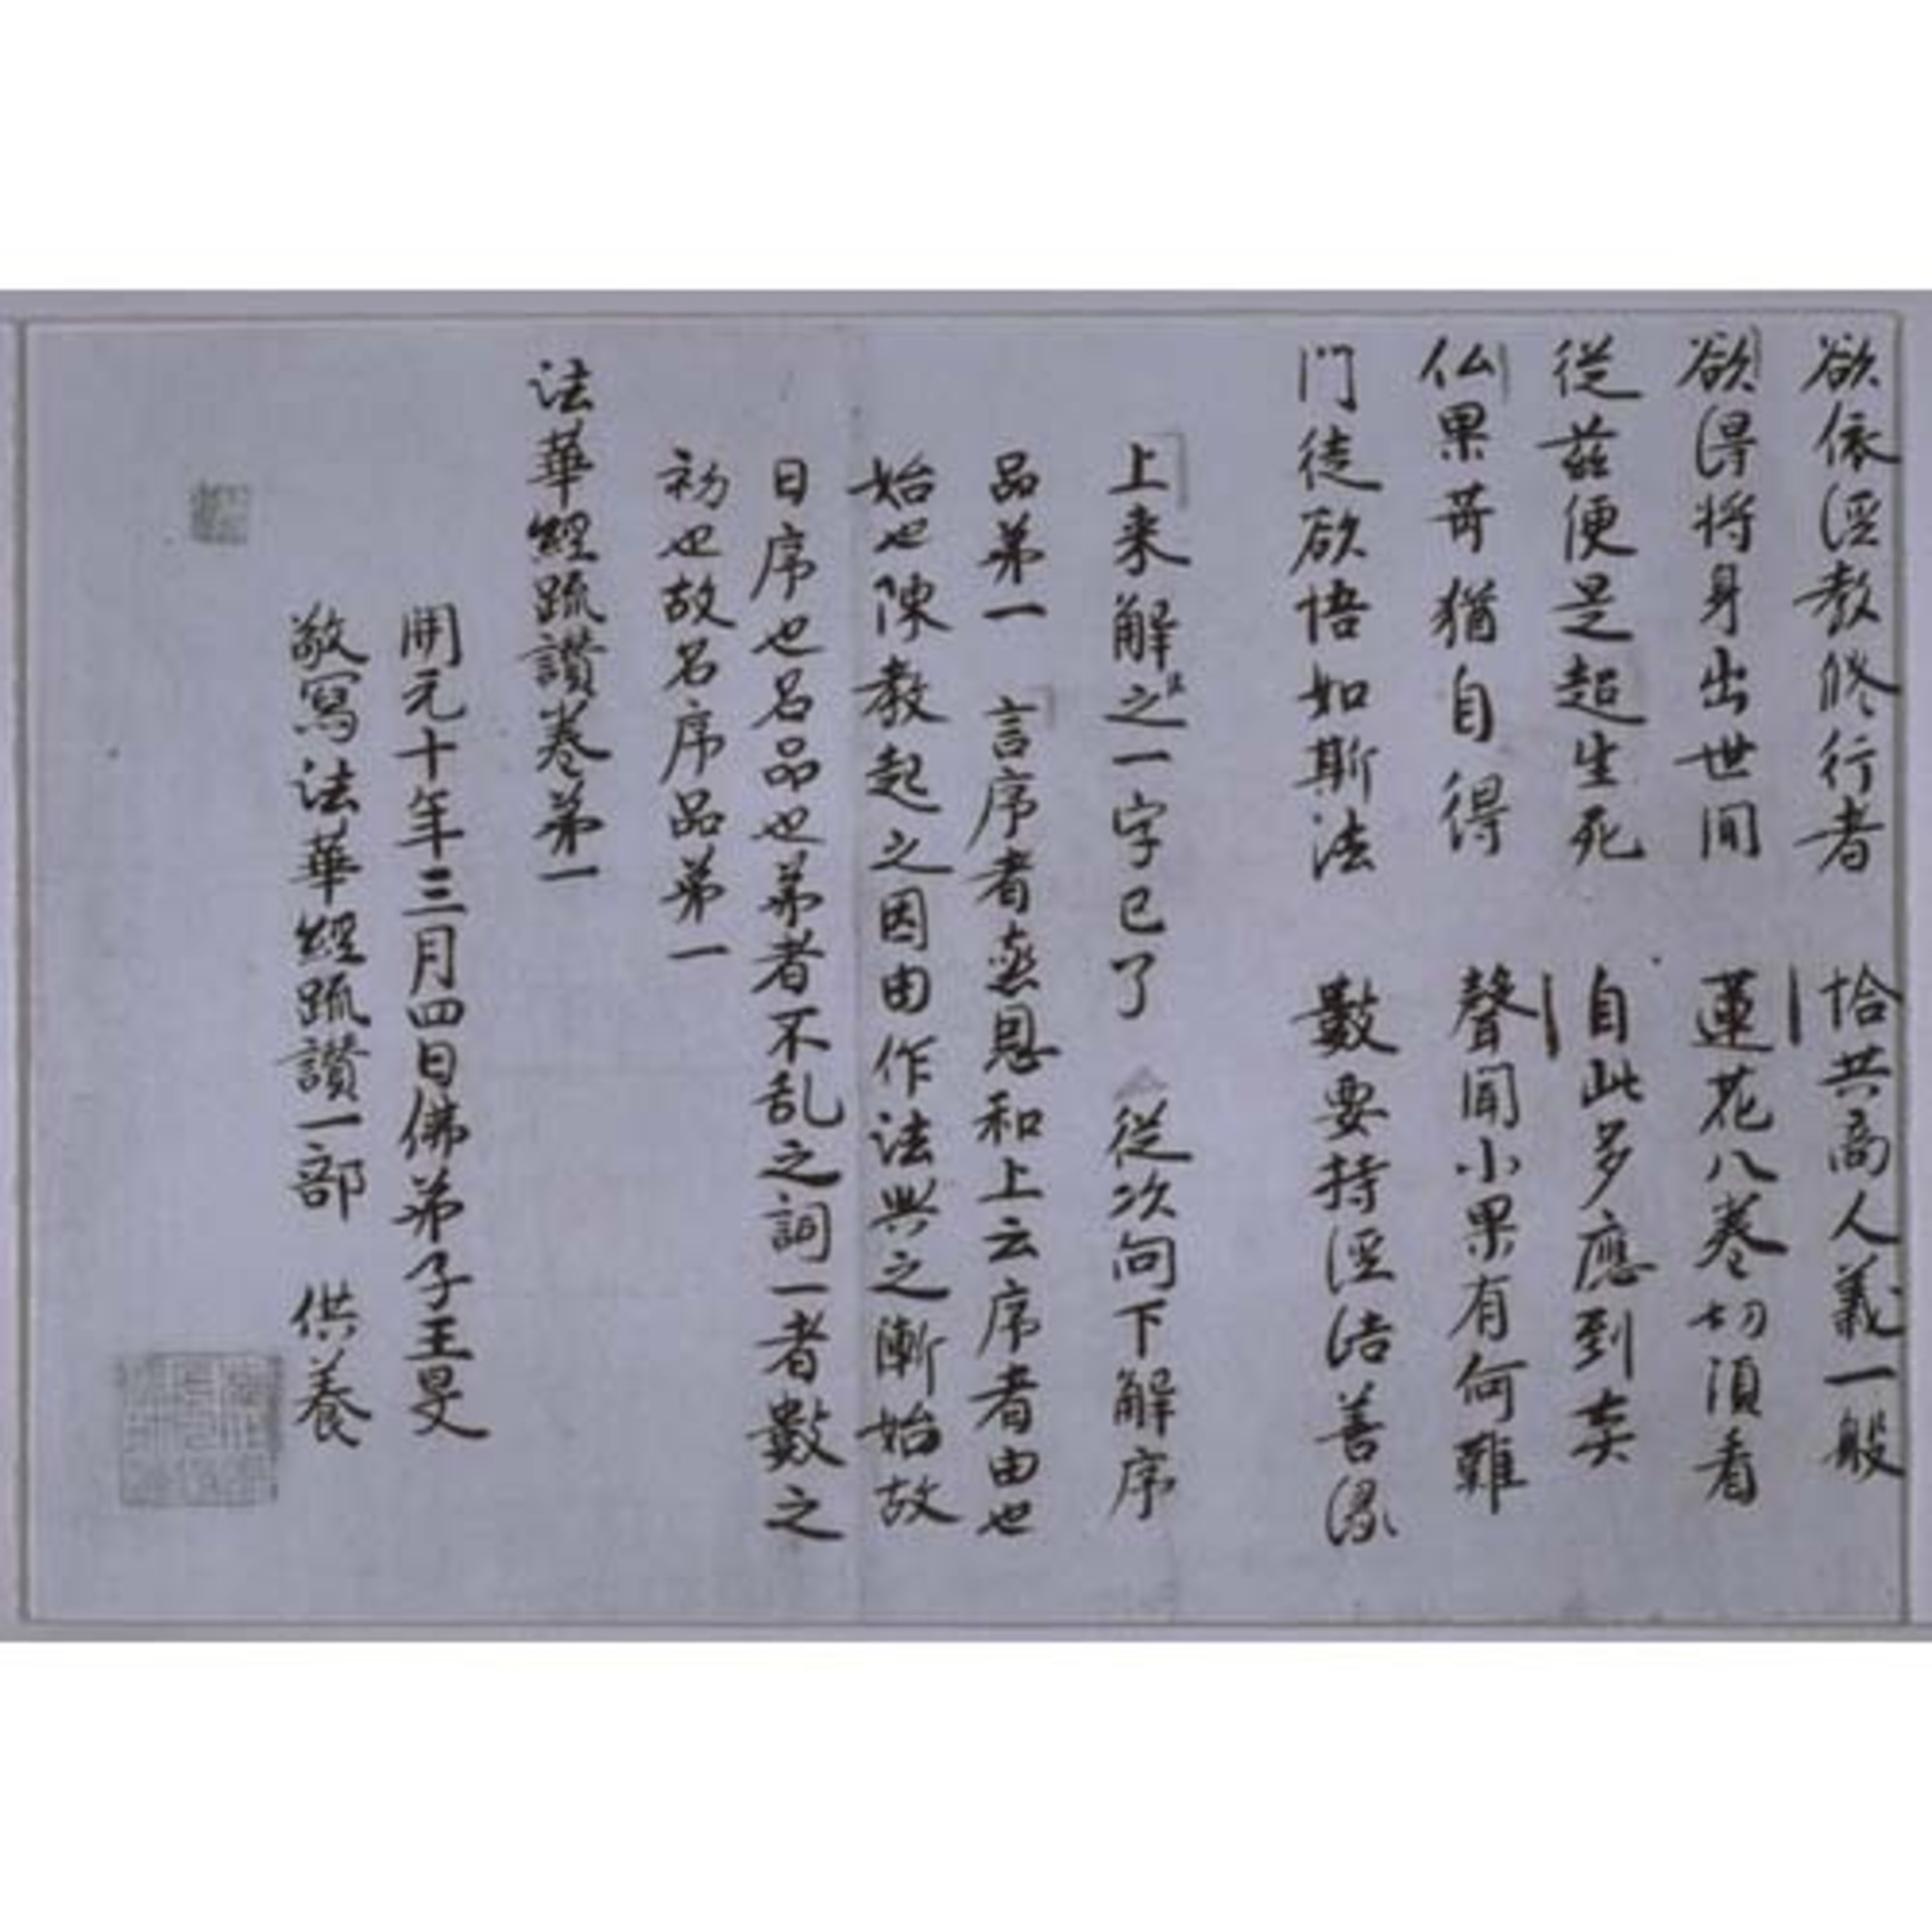 欲依經教修行者　恰共高人義一般
欲得将身出世間　蓮花八卷切須看
從茲便是超生死　自此多應到
仏果菩猶自得　聲聞小果有何難
門徒欲悟如斯法　數要持經結善緣
上来解之一字已了　從次向下解序
品弟一　言序者慈恩和上云序者由也
始也陳教起之因由作法興之漸始故
日序也名品也弟者不乱之詞一者數之
初也故名序品弟一
法華經疏讚卷弟一
開元十年三月四日佛弟子王旻
敬寫法華經疏讚一部　供養